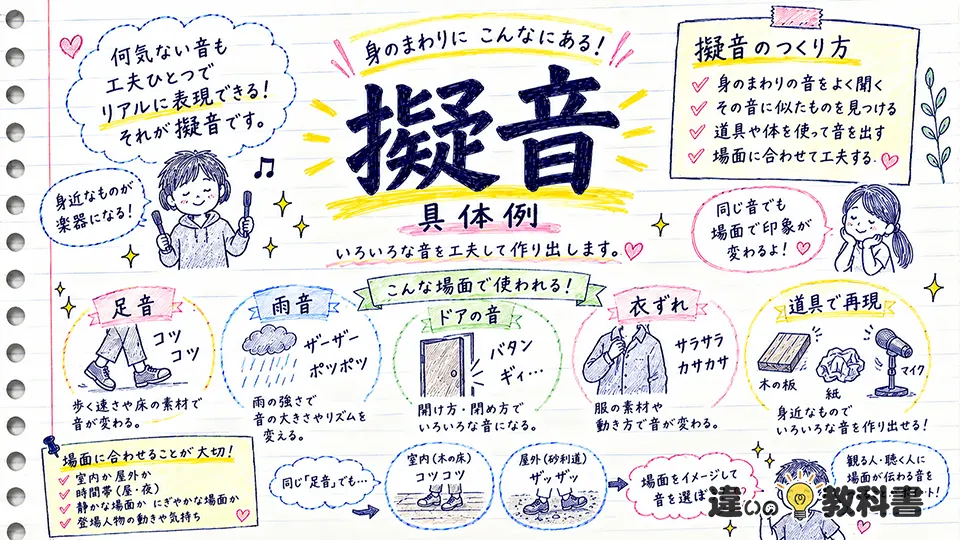 何気ない音も
工夫ひとつで
リアルに表現できる!
それが擬音です。
身近なものが
楽器になる!
身のまわりに こんなにある!
擬音
具体例
いろいろな音を工夫して作り出します。
擬音のつくり方
身のまわりの音をよく聞く
その音に似たものを見つける
道具や体を使って音を出す
場面に合わせて工夫する.
同じ音でも
場面で印象が
変わるよ!
こんな場面で使われる!
足音
コツ
コツ
歩く速さや床の素材で
音が変わる。
雨音
ザーザー
ポツポツ
雨の強さで
音の大きさやリズムを
変える。
ドアの音
バタン
ギィ…
開け方・閉め方で
いろいろな音になる。
衣ずれ
サラサラ
カサカサ
服の素材や
動き方で音が変わる。
道具で再現
木の板
紙
マイク
身近なもので
いろいろな音を作り出せる!
場面に合わせることが大切!
室内か屋外か
時間帯(昼・夜)
静かな場面か にぎやかな場面か
登場人物の動きや気持ち
同じ「足音」でも…
室内(木の床)
コツコツ
屋外(砂利道)
ザッザッ
場面をイメージして
音を選ぼ
観る人・聴く人に
場面が伝わる音を
ント!
違いの教科書